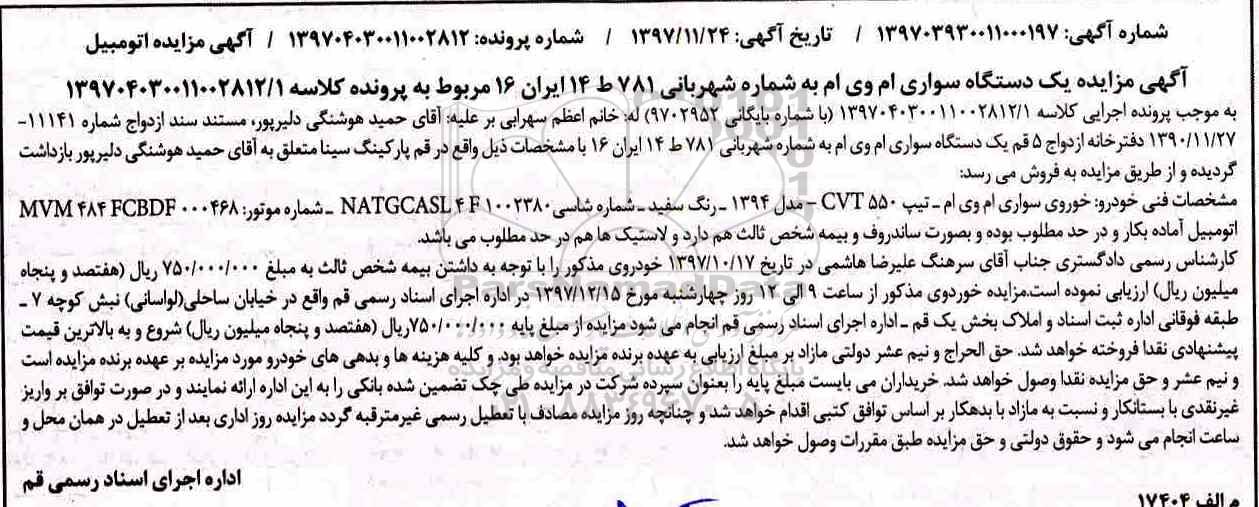 شماره آگهی: ۱۳۹۷۰۳۹۳۰۰۱۱۰۰۰۱۹۷ / تاریخ آگهی: ۱۳۹۷/۱۱/۲۴ / شماره پرونده: ۱۳۹۷۰۴۰۳۰۰۱۱۰۰۲۸۱۲ / آگهی مزایده اتومبیل
آگهی مزایده یک دستگاه سواری ام وی ام به شماره شهربانی ۷۸۱ ط ۱۴ ایران ۱۶ مربوط به پرونده کلاسه ۱۳۹۷۰۴۰۳۰۰۱۱۰۰۲۸۱۲/۱
به موجب پرونده اجرایی کلاسه ۱۳۹۷۰۴۰۳۰۰۱۱۰۰۲۸۱۲/۱ (با شماره بایگانی ۹۷۰۲۹۵۲) له: خانم اعظم سهرابی بر علیه: آقای حمید هوشنگی دلیرپور، مستند سند ازدواج شماره ۱۱۱۴۱-
۱۳۹۰/۱۱/۲۷ دفترخانه ازدواج ۵ قم یک دستگاه سواری ام وی ام به شماره شهربانی ۷۸۱ ط ۱۴ ایران ۱۶ با مشخصات ذیل واقع در قم پارکینگ سینا متعلق به آقای حمید هوشنگی دلیرپور بازداشت
گردیده و از طریق مزایده به فروش می رسد:
مشخصات فنی خودرو: خوروی سواری ام وی ام ـ تیپ ۵۵۰ CVT – مدل ۱۳۹۴ ـ رنگ سفید ـ شماره شاسی NATGCASL ۴ F ۱۰۰۲۳۸۰ ـ شماره موتور: MVM ۴۸۴ FCBDF ۰۰۰۴۶۸
اتومبیل آماده بکار و در حد مطلوب بوده و بصورت ساندروف و بیمه شخص ثالث هم دارد و لاستیک ها هم در حد مطلوب می باشد.
کارشناس رسمی دادگستری جناب آقای سرهنگ علیرضا هاشمی در تاریخ ۱۳۹۷/۱۰/۱۷ خودروی مذکور را با توجه به داشتن بیمه شخص ثالث به مبلغ ۷۵۰/۰۰۰/۰۰۰ ریال (هفتصد و پنجاه
میلیون ریال) ارزیابی نموده است.مزایده خوردوی مذکور از ساعت ۹ الی ۱۲ روز چهارشنبه مورخ ۱۳۹۷/۱۲/۱۵ در اداره اجرای اسناد رسمی قم واقع در خیابان ساحلی(لواسانی) نبش کوچه ۷ ـ
طبقه فوقانی اداره ثبت اسناد و املاک بخش یک قم ـ اداره اجرای اسناد رسمی قم انجام می شود مزایده از مبلغ پایه ۷۵۰/۰۰۰/۰۰۰ریال (هفتصد و پنجاه میلیون ریال) شروع و به بالاترین قیمت
پیشنهادی نقدا فروخته خواهد شد. حق الحراج و نیم عشر دولتی مازاد بر مبلغ ارزیابی به عهده برنده مزایده خواهد بود. و کلیه هزینه ها و بدهی های خودرو مورد مزایده بر عهده برنده مزایده است
و نیم عشر و حق مزایده نقدا وصول خواهد شد. خریداران می بایست مبلغ پایه را بعنوان سپرده شرکت در مزایده طی چک تضمین شده بانکی را به این اداره ارائه نمایند و در صورت توافق بر واریز
غیرنقدی با بستانکار و نسبت به مازاد با بدهکار بر اساس توافق کتبی اقدام خواهد شد و چنانچه روز مزایده مصادف با تعطیل رسمی غیرمترقبه گردد مزایده روز اداری بعد از تعطیل در همان محل و
ساعت انجام می شود و حقوق دولتی و حق مزایده طبق مقررات وصول خواهد شد.
اداره اجرای اسناد رسمی قم
م الف ۱۷۴۰۴
ParsNamadData
پایگاه اطلاع رسانی مناقصه و مزایده